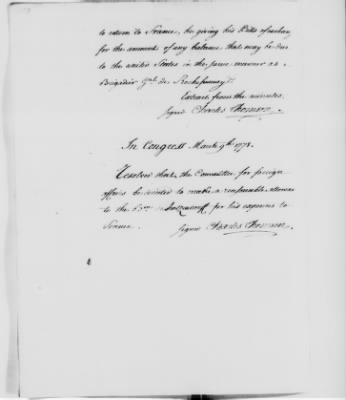 to return to France, he giving his Bills of exchange
for the amount of any balance that may be due
to the united States in the same manner as
Brigadier Gnl de
Extract from the minutes.
signed Charles Thomson.
In Congress March 9th 1778.
Resolved that the Committee for foreign
affairs be directed to make a reasonable allowance
to the for his expences to
France. signed Charles Thomson.